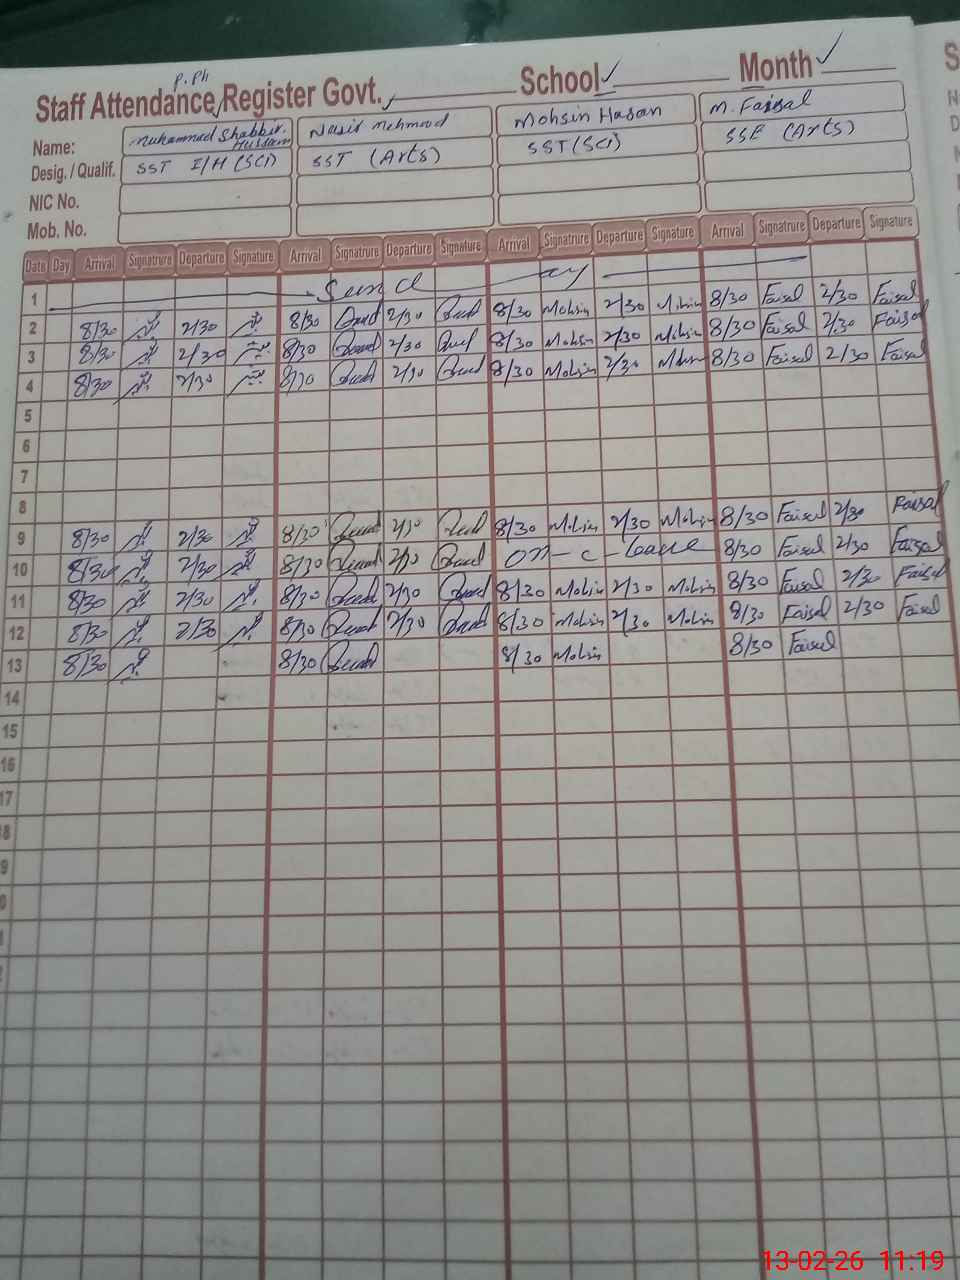 P.Ph
Staff Attendance Register Govt. School Month
Name: Muhammad Shabbir Hussain Nasir Mehmood Mohsin Hasan M. Faisal
Desig. / Qualif. SST I/H (SCI) SST (Arts) SST (Sci) SSE (Arts)
NIC No.
Mob. No.
Date Day Arrival Signatrure Departure Signature Arrival Signatrure Departure Signature Arrival Signatrure Departure Signature Arrival Signatrure Departure Signature
1 Sund ay
2 8/30 2/30 8/30 2/30 8/30 Mohsin 2/30 Mohsin 8/30 Faisal 2/30 Faisal
3 8/30 2/30 8/30 2/30 8/30 Mohsin 2/30 Mohsin 8/30 Faisal 2/30 Faisal
4 8/30 2/30 8/30 2/30 8/30 Mohsin 2/30 Mohsin 8/30 Faisal 2/30 Faisal
5
6
7
8
9 8/30 2/30 8/30 2/30 8/30 Mohsin 2/30 Mohsin 8/30 Faisal 2/30 Faisal
10 8/30 2/30 8/30 2/30 on - c - leave 8/30 Faisal 2/30 Faisal
11 8/30 2/30 8/30 2/30 8/30 Mohsin 2/30 Mohsin 8/30 Faisal 2/30 Faisal
12 8/30 2/30 8/30 2/30 8/30 Mohsin 2/30 Mohsin 8/30 Faisal 2/30 Faisal
13 8/30 8/30 8/30 Mohsin 8/30 Faisal
14
15
16
17
8
9
0
13-02-26 11:19